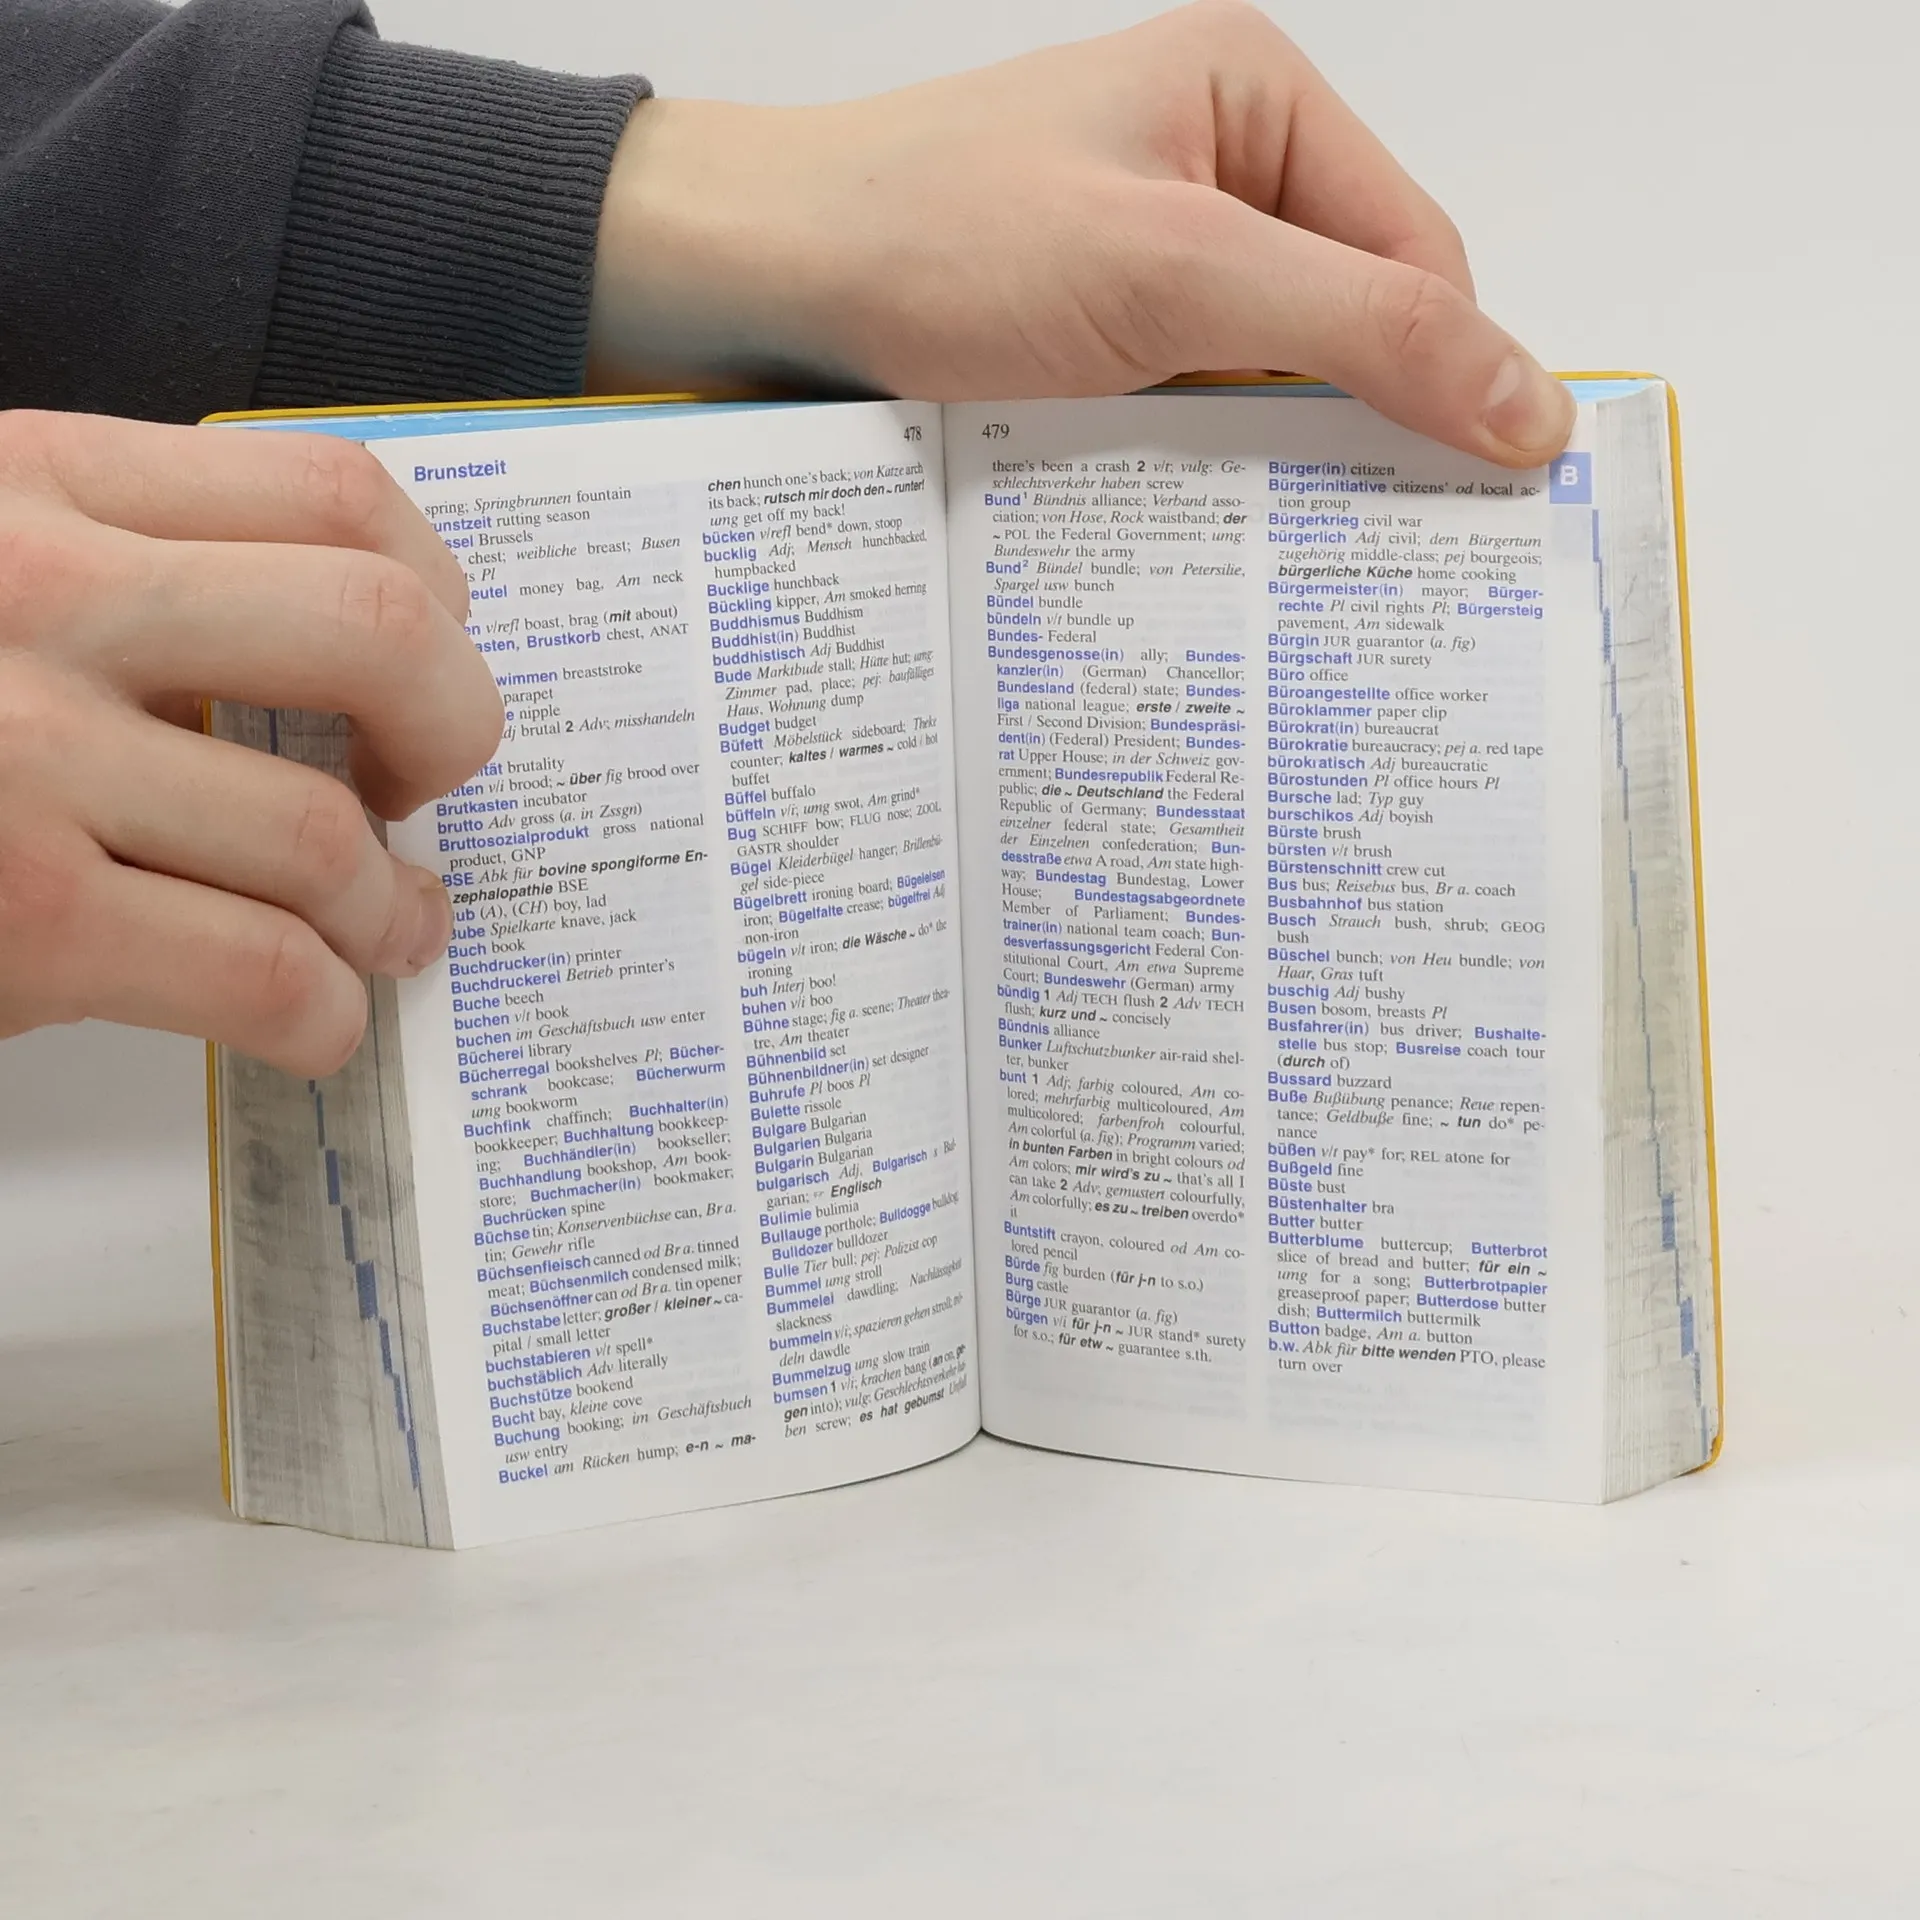 478
Brunstzeit
spring; Springbrunnen fountain
unstzeit rutting season
ssel Brussels
chest; weibliche breast; Busen
ts Pl
eutel money bag, Am neck
en v/refl boast, brag (mit about)
asten, Brustkorb chest, ANAT
wimmen breaststroke
parapet
e nipple
dj brutal 2 Adv; misshandeln
ität brutality
ruten v/i brood; ~ über fig brood over
Brutkasten incubator
brutto Adv gross (a. in Zssgn)
Bruttosozialprodukt gross national
product, GNP
BSE Abk für bovine spongiforme En-
zephalopathie BSE
ub (A), (CH) boy, lad
Bube Spielkarte knave, jack
Buch book
Buchdrucker(in) printer
Buchdruckerei Betrieb printer's
Buche beech
buchen v/t book
buchen im Geschäftsbuch usw enter
Bücherei library
Bücherregal bookshelves Pl; Bücher-
schrank bookcase; Bücherwurm
umg bookworm
Buchfink chaffinch; Buchhalter(in)
bookkeeper; Buchhaltung bookkeep-
ing; Buchhändler(in) bookseller;
Buchhandlung bookshop, Am book-
store; Buchmacher(in) bookmaker;
Buchrücken spine
Büchse tin; Konservenbüchse can, Br a.
tin; Gewehr rifle
Büchsenfleisch canned od Br a. tinned
meat; Büchsenmilch condensed milk;
Büchsenöffner can od Br a. tin opener
Buchstabe letter; großer / kleiner ~ ca-
pital / small letter
buchstabieren v/t spell*
buchstäblich Adv literally
Buchstütze bookend
Bucht bay, kleine cove
Buchung booking; im Geschäftsbuch
usw entry
Buckel am Rücken hump; e-n ~ ma-
chen hunch one's back; von Katze arch
its back; rutsch mir doch den ~ runter!
umg get off my back!
bücken v/refl bend* down, stoop
bucklig Adj; Mensch hunchbacked,
humpbacked
Bucklige hunchback
Bückling kipper, Am smoked herring
Buddhismus Buddhism
Buddhist(in) Buddhist
buddhistisch Adj Buddhist
Bude Marktbude stall; Hütte hut; umg:
Zimmer pad, place; pej: baufälliges
Haus, Wohnung dump
Budget budget
Büfett Möbelstück sideboard; Theke
counter; kaltes / warmes ~ cold / hot
buffet
Büffel buffalo
büffeln v/i; umg swot, Am grind*
Bug SCHIFF bow; FLUG nose; ZOOL,
GASTR shoulder
Bügel Kleiderbügel hanger; Brillenbü-
gel side-piece
Bügelbrett ironing board; Bügeleisen
iron; Bügelfalte crease; bügelfrei Adj
non-iron
bügeln v/t iron; die Wäsche ~ do* the
ironing
buh Interj boo!
buhen v/i boo
Bühne stage; fig a. scene; Theater thea-
tre, Am theater
Bühnenbild set
Bühnenbildner(in) set designer
Buhrufe Pl boos Pl
Bulette rissole
Bulgare Bulgarian
Bulgarien Bulgaria
Bulgarin Bulgarian
bulgarisch Adj, Bulgarisch s Bul-
garian; ☞ Englisch
Bulimie bulimia
Bullauge porthole; Bulldogge bulldog
Bulldozer bulldozer
Bulle Tier bull; pej: Polizist cop
Bummel umg stroll
Bummelei dawdling; Nachlässigkeit
slackness
bummeln v/i; spazieren gehen stroll; trö-
deln dawdle
Bummelzug umg slow train
bumsen 1 v/i; krachen bang (an on, ge-
gen into); vulg: Geschlechtsverkehr ha-
ben screw; es hat gebumst Unfall
479
there's been a crash 2 v/t; vulg: Ge-
schlechtsverkehr haben screw
Bund¹ Bündnis alliance; Verband asso-
ciation; von Hose, Rock waistband; der
~ POL the Federal Government; umg:
Bundeswehr the army
Bund² Bündel bundle; von Petersilie,
Spargel usw bunch
Bündel bundle
bündeln v/t bundle up
Bundes- Federal
Bundesgenosse(in) ally; Bundes-
kanzler(in) (German) Chancellor;
Bundesland (federal) state; Bundes-
liga national league; erste / zweite ~
First / Second Division; Bundespräsi-
dent(in) (Federal) President; Bundes-
rat Upper House; in der Schweiz gov-
ernment; Bundesrepublik Federal Re-
public; die ~ Deutschland the Federal
Republic of Germany; Bundesstaat
einzelner federal state; Gesamtheit
der Einzelnen confederation; Bun-
desstraße etwa A road, Am state high-
way; Bundestag Bundestag, Lower
House; Bundestagsabgeordnete
Member of Parliament; Bundes-
trainer(in) national team coach; Bun-
desverfassungsgericht Federal Con-
stitutional Court, Am etwa Supreme
Court; Bundeswehr (German) army
bündig 1 Adj TECH flush 2 Adv TECH
flush; kurz und ~ concisely
Bündnis alliance
Bunker Luftschutzbunker air-raid shel-
ter, bunker
bunt 1 Adj; farbig coloured, Am co-
lored; mehrfarbig multicoloured, Am
multicolored; farbenfroh colourful,
Am colorful (a. fig); Programm varied;
in bunten Farben in bright colours od
Am colors; mir wird's zu ~ that's all I
can take 2 Adv; gemustert colourfully,
Am colorfully; es zu ~ treiben overdo*
it
Buntstift crayon, coloured od Am co-
lored pencil
Bürde fig burden (für j-n to s.o.)
Burg castle
Bürge JUR guarantor (a. fig)
bürgen v/i für j-n ~ JUR stand* surety
for s.o.; für etw ~ guarantee s.th.
Bürger(in) citizen
Bürgerinitiative citizens' od local ac-
tion group
Bürgerkrieg civil war
bürgerlich Adj civil; dem Bürgertum
zugehörig middle-class; pej bourgeois;
bürgerliche Küche home cooking
Bürgermeister(in) mayor; Bürger-
rechte Pl civil rights Pl; Bürgersteig
pavement, Am sidewalk
Bürgin JUR guarantor (a. fig)
Bürgschaft JUR surety
Büro office
Büroangestellte office worker
Büroklammer paper clip
Bürokrat(in) bureaucrat
Bürokratie bureaucracy; pej a. red tape
bürokratisch Adj bureaucratic
Bürostunden Pl office hours Pl
Bursche lad; Typ guy
burschikos Adj boyish
Bürste brush
bürsten v/t brush
Bürstenschnitt crew cut
Bus bus; Reisebus bus, Br a. coach
Busbahnhof bus station
Busch Strauch bush, shrub; GEOG
bush
Büschel bunch; von Heu bundle; von
Haar, Gras tuft
buschig Adj bushy
Busen bosom, breasts Pl
Busfahrer(in) bus driver; Bushalte-
stelle bus stop; Busreise coach tour
(durch of)
Bussard buzzard
Buße Bußübung penance; Reue repen-
tance; Geldbuße fine; ~ tun do* pe-
nance
büßen v/t pay* for; REL atone for
Bußgeld fine
Büste bust
Büstenhalter bra
Butter butter
Butterblume buttercup; Butterbrot
slice of bread and butter; für ein ~
umg for a song; Butterbrotpapier
greaseproof paper; Butterdose butter
dish; Buttermilch buttermilk
Button badge, Am a. button
b.w. Abk für bitte wenden PTO, please
turn over
B